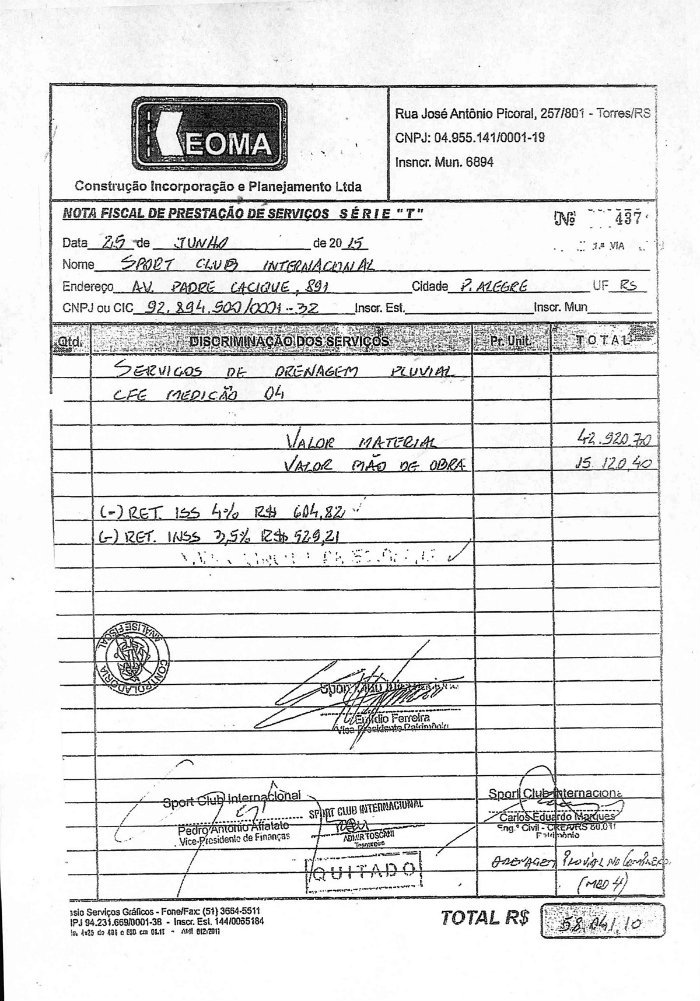 KEOMA
Construção Incorporação e Planejamento Ltda
Rua José Antônio Picoral, 257/801 - Torres/RS
CNPJ: 04.955.141/0001-19
Insncr. Mun. 6894
NOTA FISCAL DE PRESTAÇÃO DE SERVIÇOS SÉRIE "T"
Nº 437
Data 25 de JUNHO de 2015
1.ª VIA
Nome SPORT CLUB INTERNACIONAL
Endereço AV. PADRE CACIQUE, 891 Cidade P. ALEGRE UF RS
CNPJ ou CIC 92.894.500/0001-32 Inscr. Est. Inscr. Mun
Qtd. DISCRIMINAÇÃO DOS SERVIÇOS Pr. Unit. TOTAL
SERVIÇOS DE DRENAGEM PLUVIAL
CFE MEDIÇÃO 04
VALOR MATERIAL 42.920,70
VALOR MÃO DE OBRA 15.120,40
(-) RET. ISS 4% R$ 604,82
(-) RET. INSS 3,5% R$ 529,21
ANÁLISE FISCAL
CONTROLADORIA
Sport Club
Emídio Ferreira
Vice Presidente Patrimônio
Sport Club Internacional
Pedro Antonio Affatato
Vice-Presidente de Finanças
SPORT CLUB INTERNACIONAL
ADMIR TOSCANI
Sport Club Internaciona
Carlos Eduardo Marques
Eng.º Civil - CREA/RS
Patrimônio
QUITADO
DRENAGEM PLUVIAL NO COMPLEXO
(MED 4)
ssio Serviços Gráficos - Fone/Fax: (51) 3664-5511
IPJ 94.231.669/0001-38 - Inscr. Est. 144/0055184
TOTAL R$ 58.041,10